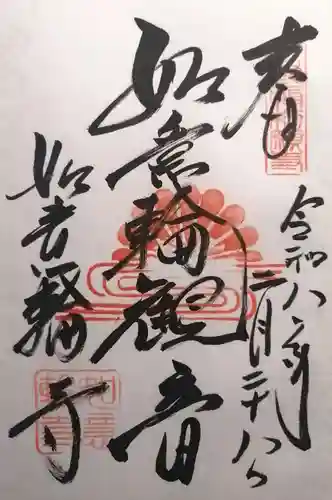 奉拝
令和八年二月二十八日
如意輪観音
如意輪寺
如意
輪寺